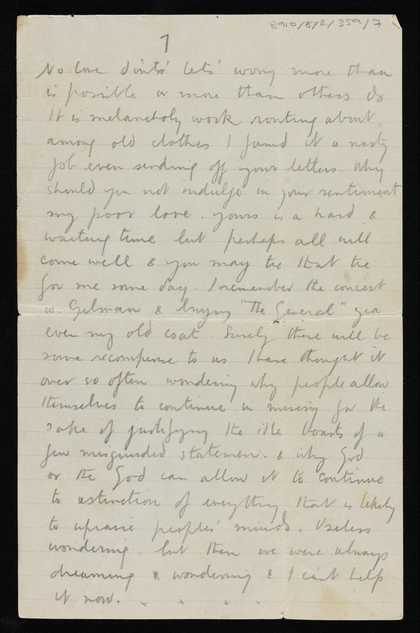 8910/8/2/359/7
7
No love don't let's worry more than
is possible or more than others do
It is melancholy work routing about
among old clothes I found it a nasty
job even sending off your letters. Why
should you not indulge in your sentiment
my poor love. yours is a hard &
waiting time but perhaps all will
come well & you may tie that tie
for me some day. I remember the concert
w. Gilman & buying "The General" yea
even my old coat. Surely there will be
some recompense to us I have thought it
over so often wondering why people allow
themselves to continue in misery for the
sake of justifying the idle boasts of a
few misguided statesmen. & why God
or the God can allow it to continue
to extinction of everything that is likely
to upraise peoples' minds. Useless
wondering. but then we were always
dreaming & wondering & I can't help
it now. . . . .